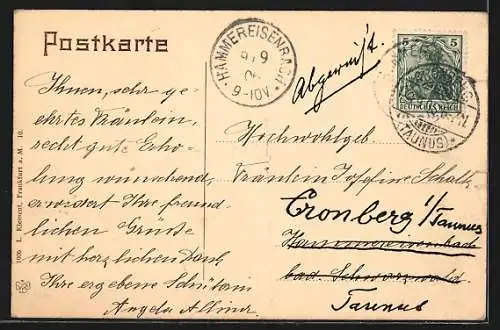 Postkarte
HAMMEREISENBACH
9/9
06
9-10V
Abgereist.
5
DEUTSCHES REICH
(TAUNUS)
Ihnen, sehr ge-
ehrtes Fräulein,
recht gute Erho-
lung wünschend,
erwidert Ihre freund-
lichen Grüße
mit herzlichem Dank
Ihre ergebene Schülerin
Angela
Hochwohlgeb.
Fräulein Josefine
Cronberg i/Taunus
Hammereisenbach
bad. Schwarzwald
Taunus
1906 L. Klement, Frankfurt a. M. 10.